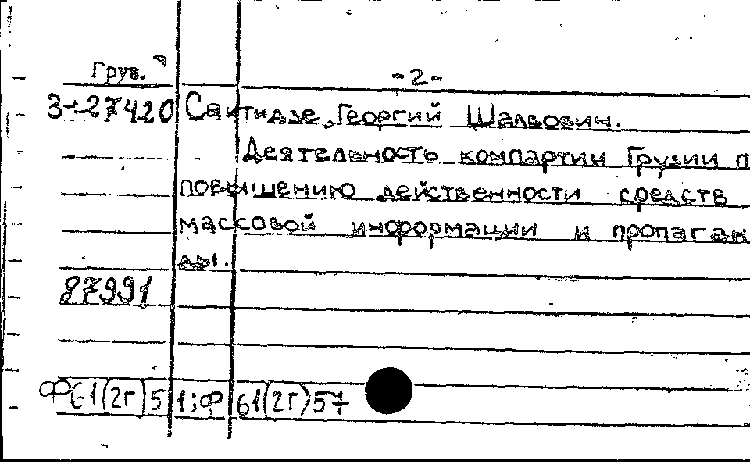 Груз.
-2-
3-27420 Сактидзе, Георгий Шалвович.
Деятельность компартии Грузии п
повышению действенности средств
массовой информации и пропаган
ды.
87991
Ф61(2Г)51; Ф61(2Г)57